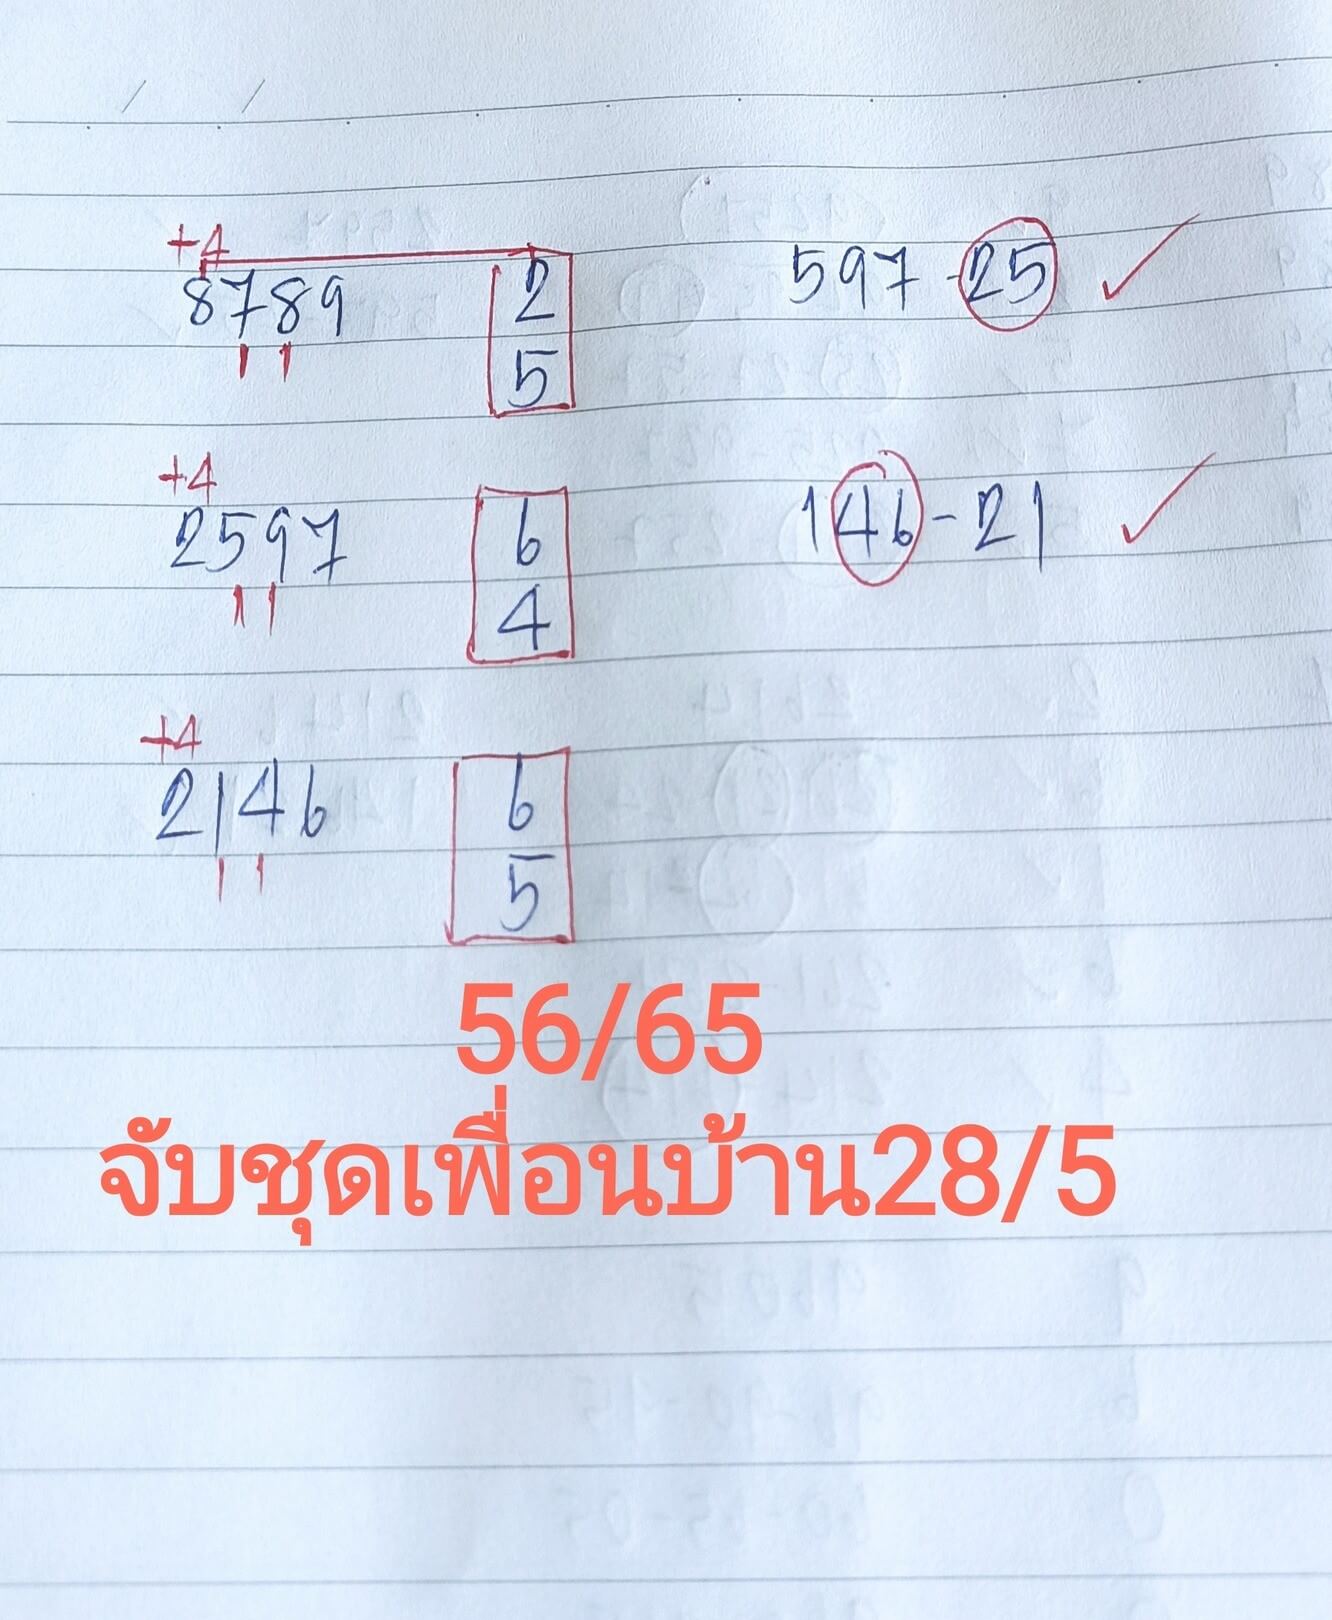 +4
8789 2 597-25
5
+4
2597 6 146-21
4
+4
2146 6
5
56/65
จับชุดเพื่อนบ้าน28/5